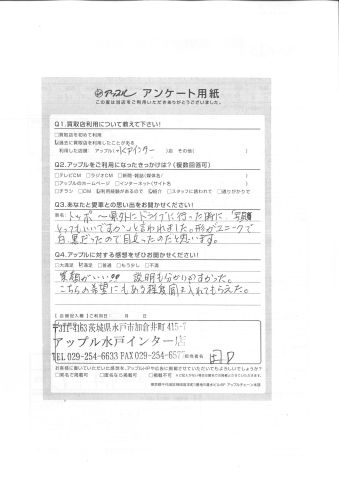 アップル アンケート用紙
この度は当店をご利用いただきありがとうございました。
Q1.買取店利用について教えて下さい!
□買取店を初めて利用
☑過去に買取店を利用したことがある
利用した店舗 アップル( 水戸インター )店 その他( )
Q2.アップルをご利用になったきっかけは?(複数回答可)
□テレビCM □ラジオCM □新聞・雑誌(媒体名)
□アップルのホームページ □インターネット(サイト名 )
□チラシ □DM ☑利用経験があるので ☑紹介 □スタッフに誘われて □通りがかりで
Q3.あなたと愛車との思い出をお聞かせ下さい!
車名: トッポ 〜県外にドライブに行った時に、写真撮
とってもいいですかっと言われました。形がユニークで
白、黒だったので目立ったのだと思います。
Q4.アップルに対する感想をぜひお聞かせください!
□大満足 ☑満足 □普通 □もう少し □不満
笑顔がいい 説明も分かりやすかった。
こちらの希望にもある程度聞き入れてもらえた。
【店頭記入欄】ご利用日: 月 日
茨城県水戸市加倉井町415-7
アップル水戸インター店
TEL 029-254-6633 FAX 029-254-6577
担当者名
お客様に書いていただいた感想を、アップルHPや広告に掲載させていただいてもよろしいでしょうか?
□実名で掲載可 □匿名なら掲載可 □掲載不可